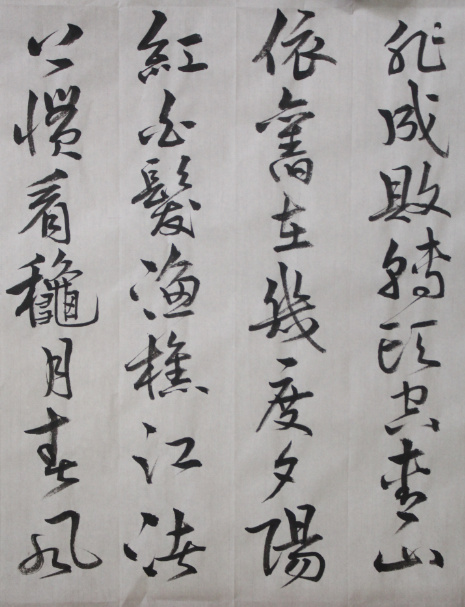 非成敗轉頭空青山
依舊在幾度夕陽
紅白髮漁樵江渚
上慣看龝月春風